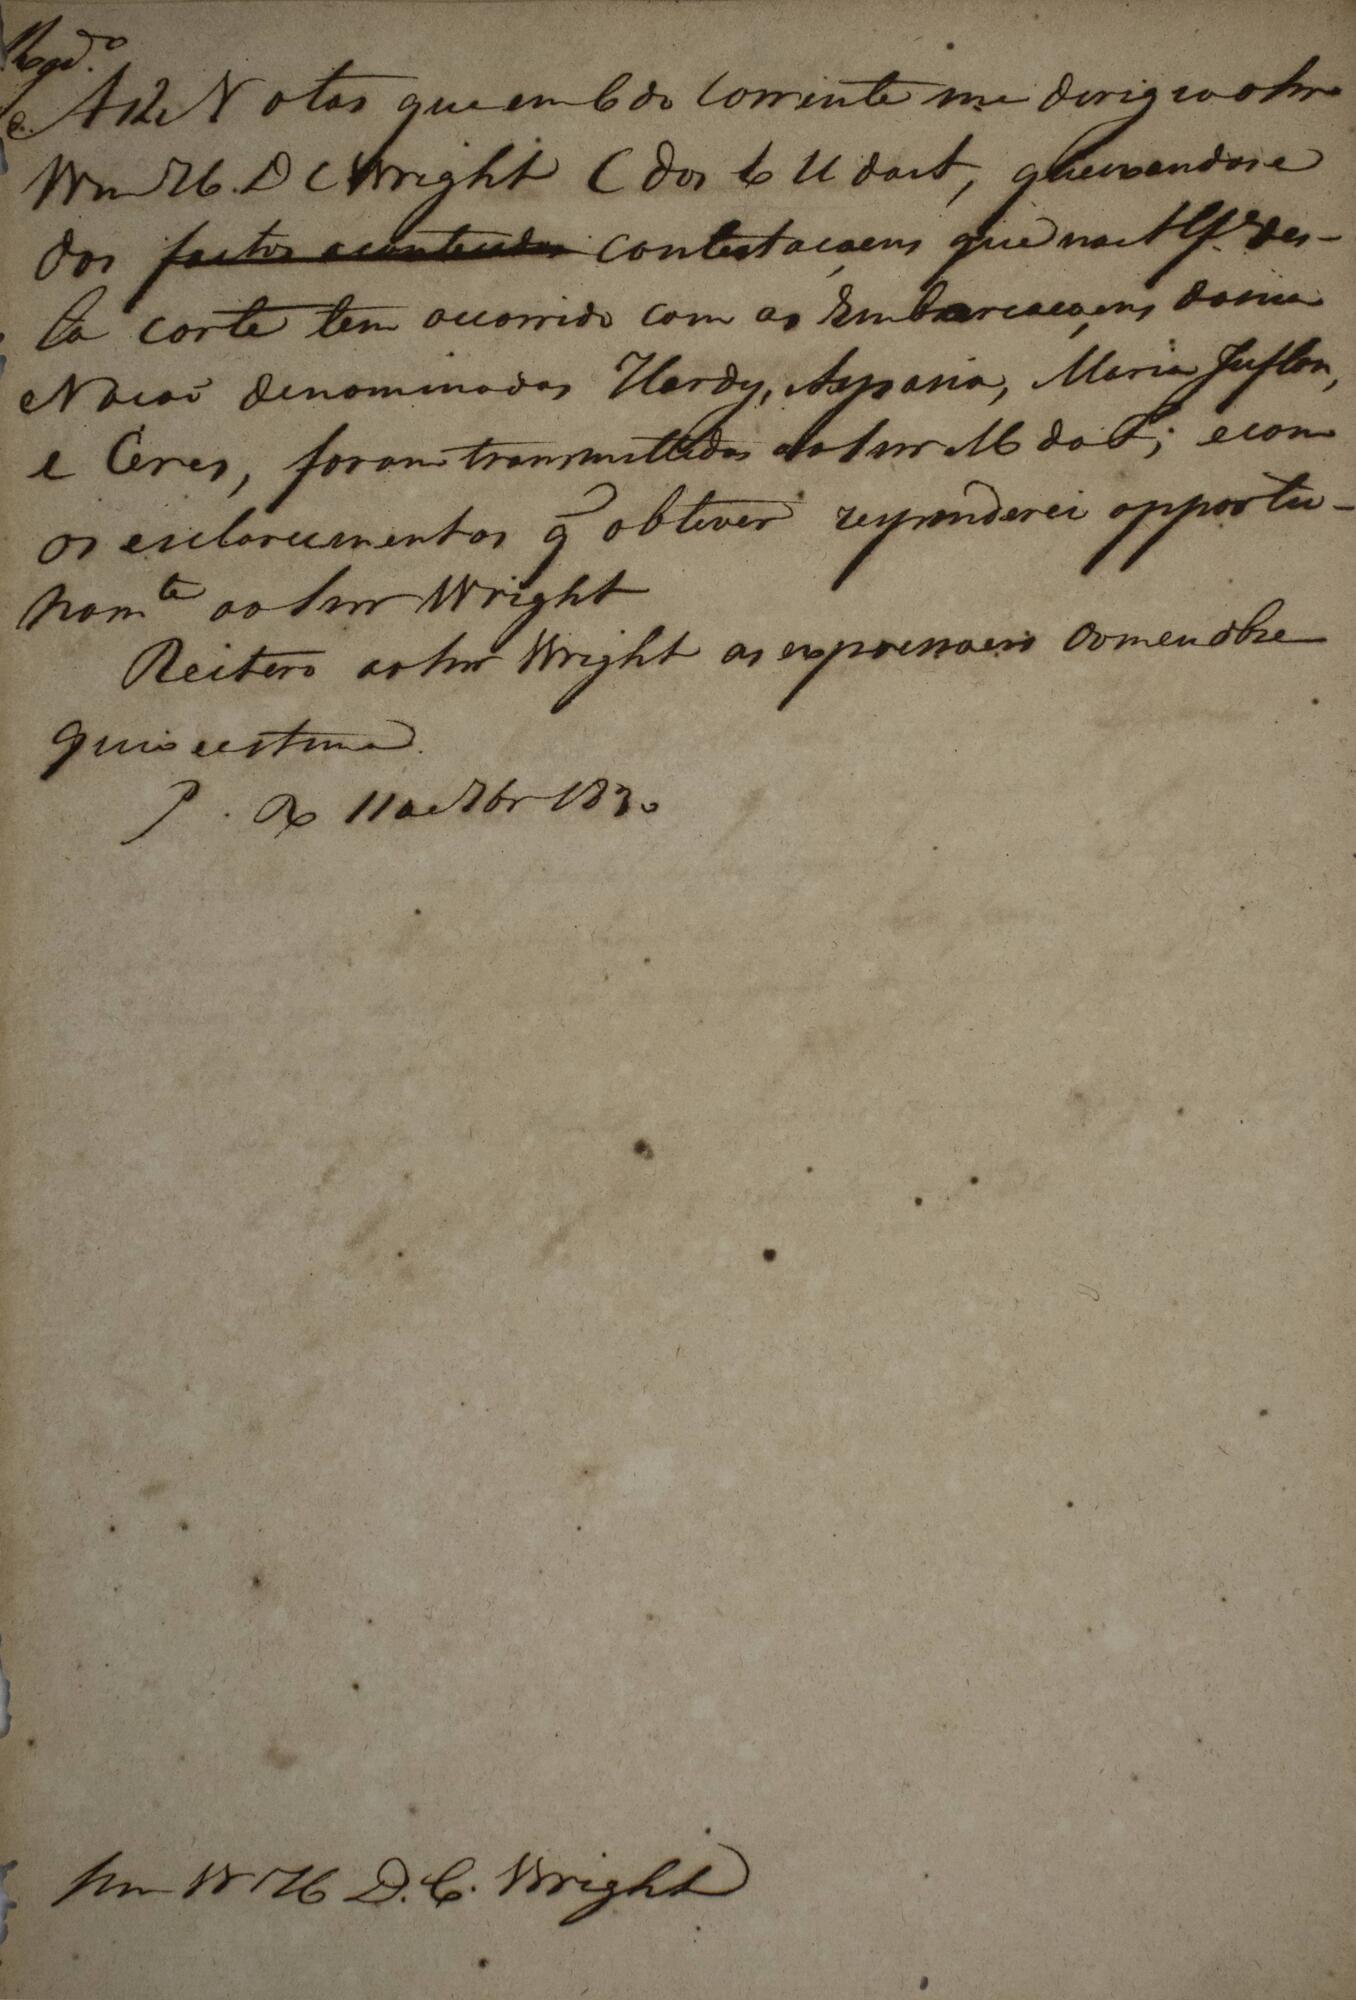 Regd.º
As 2 Notas que em 6 do Corrente me dirigio o Snr
Wm H. D C Wright C dos E U da A, queixandose
dos factos acontecidos contestaçoens que na Alfª des-
ta corte tem occorrido com as Embarcaçoens da sua
Nacaõ denominadas Hardy, Aspasia, Maria
e Ceres, foram transmittidas ao Snr M da F; e com
os esclarecimentos q̃ obtiver responderei opportu-
nam.te ao Snr Wright
Reitero ao Snr Wright as expressoens do meu obse
quio e estima.
P. 11 de 7br 1830
Snr W H D. C. Wright